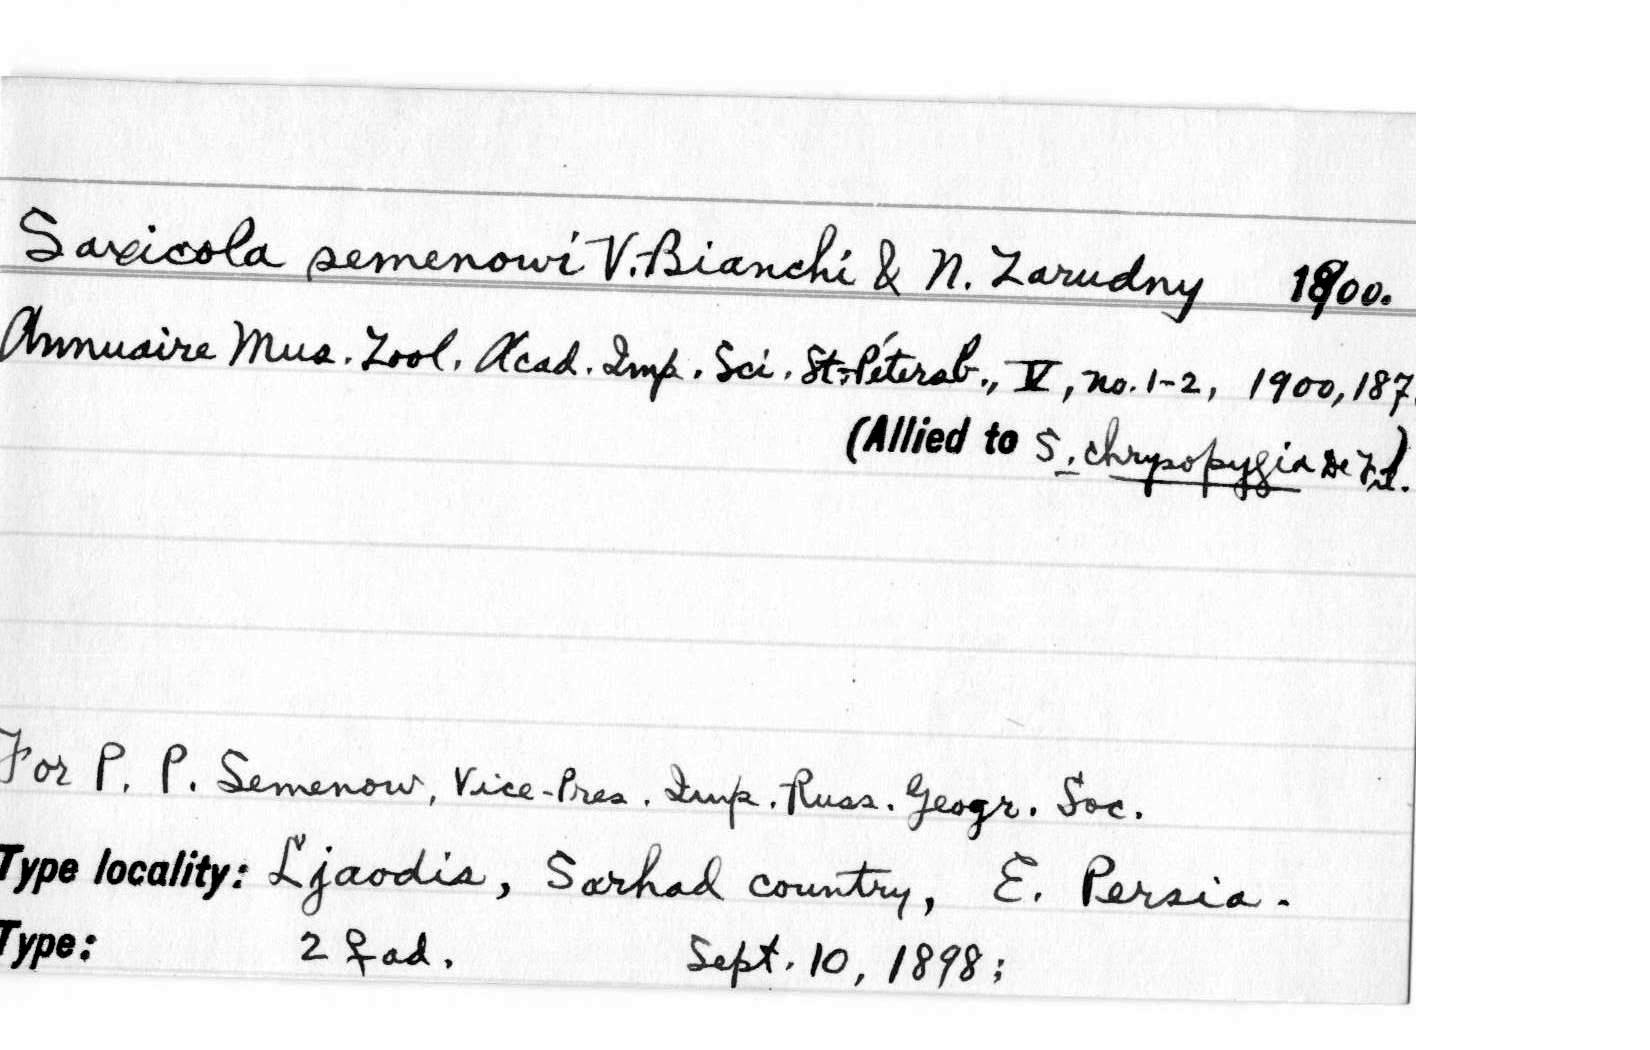 Saxicola semenowi V. Bianchi & N. Zarudny 1900.
Annuaire Mus. Zool. Acad. Imp. Sci. St.-Pétersb., V, no. 1-2, 1900, 187.
(Allied to S. chrysopygia De Fil.)
For P. P. Semenow, Vice-Pres. Imp. Russ. Geogr. Soc.
Type locality: Ljaodis, Sarhad country, E. Persia.
Type: 2 ♀ ad. Sept. 10, 1898;